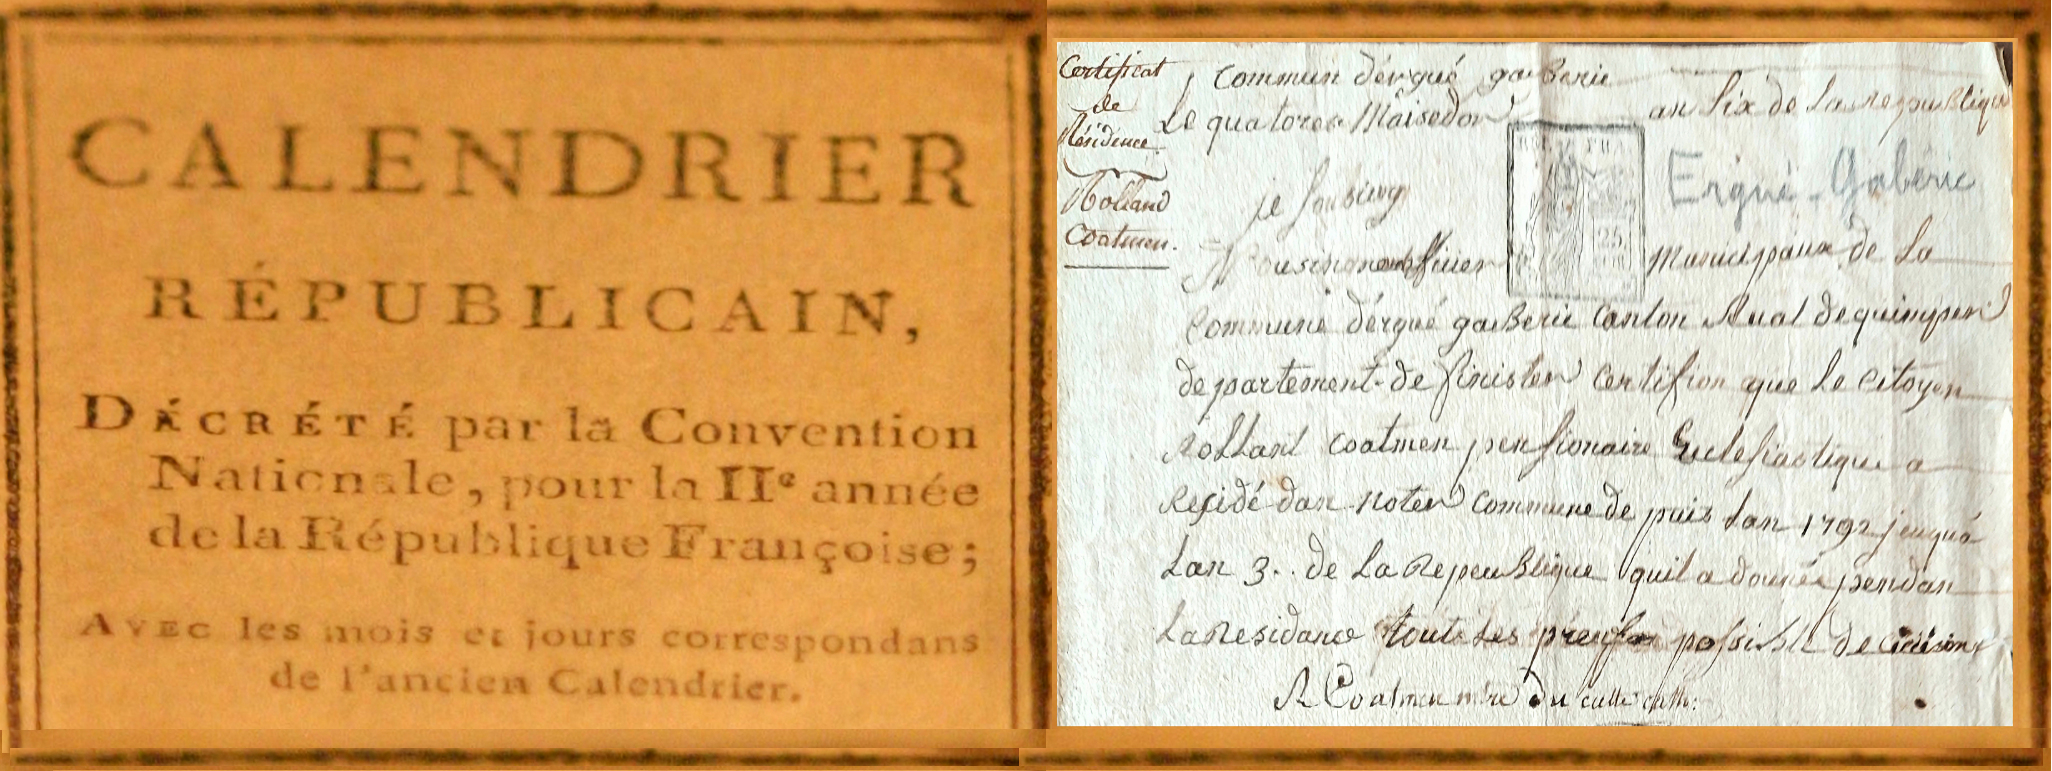 CALENDRIER
RÉPUBLICAIN,
DÉCRÉTÉ par la Convention
Nationale, pour la IIe année
de la République Françoise;
AVEC les mois et jours correspondans
de l'ancien Calendrier.
Certificat
de
Résidence
Rolland
Coatmen.
Commun dérgué gaberie
Le quatorse Maisedor an six de La republique
Ergué-Gabéric
je soubsieng
officier Municipaux de La
Commune dérgué gaberie Canton Rual de quimper
departement de finister Certifion que Le Citoyen
Rolland Coatmen pensionaire Eclesiastique a
Residé dan noter Commune de puis Lan 1792 jeuqué
Lan 3.. de La Repeublique quil a donnée pendan
La Residance toute Les possible de
R Coatmen du culte cath: